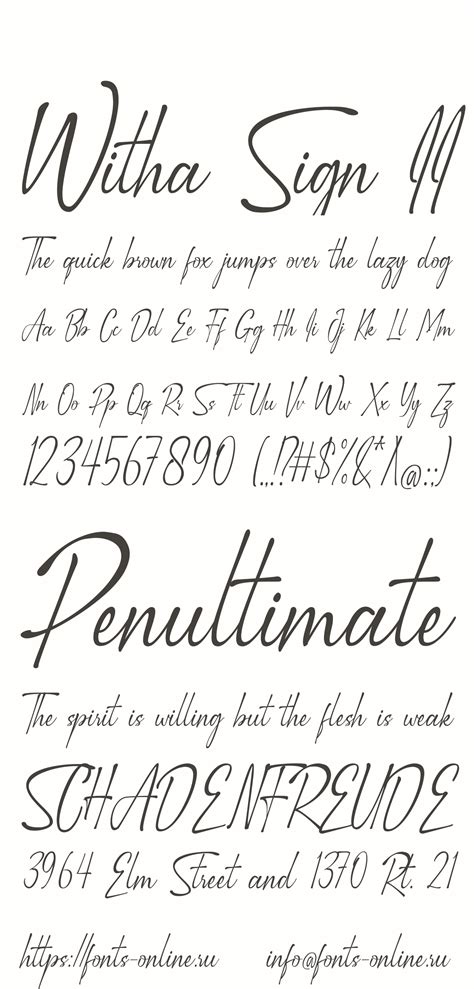 Witha Sign II
The quick brown fox jumps over the lazy dog
Aa Bb Cc Dd Ee Ff Gg Hh Ii Jj Kk Ll Mm
Nn Oo Pp Qq Rr Ss Tt Uu Vv Ww Xx Yy Zz
1234567890 (.,!?#$%&*\@:;)
Penultimate
The spirit is willing but the flesh is weak
SCHADENFREUDE
3964 Elm Street and 1370 Rt. 21
https://fonts-online.ru info@fonts-online.ru